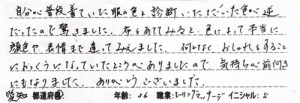 自分が普段着ていた服の色と診断していただいた色が逆
だったので驚きました。布をあててみると、色によって本当に
顔色や表情まで違ってみえました。何となく、おしゃれをすること
におっくうになっていたところへありましたので、気持ちが前向き
にもなりました。ありがとうございました。
愛知 都道府県 年齢:36 職業:レーシックマッサージ イニシャル:S